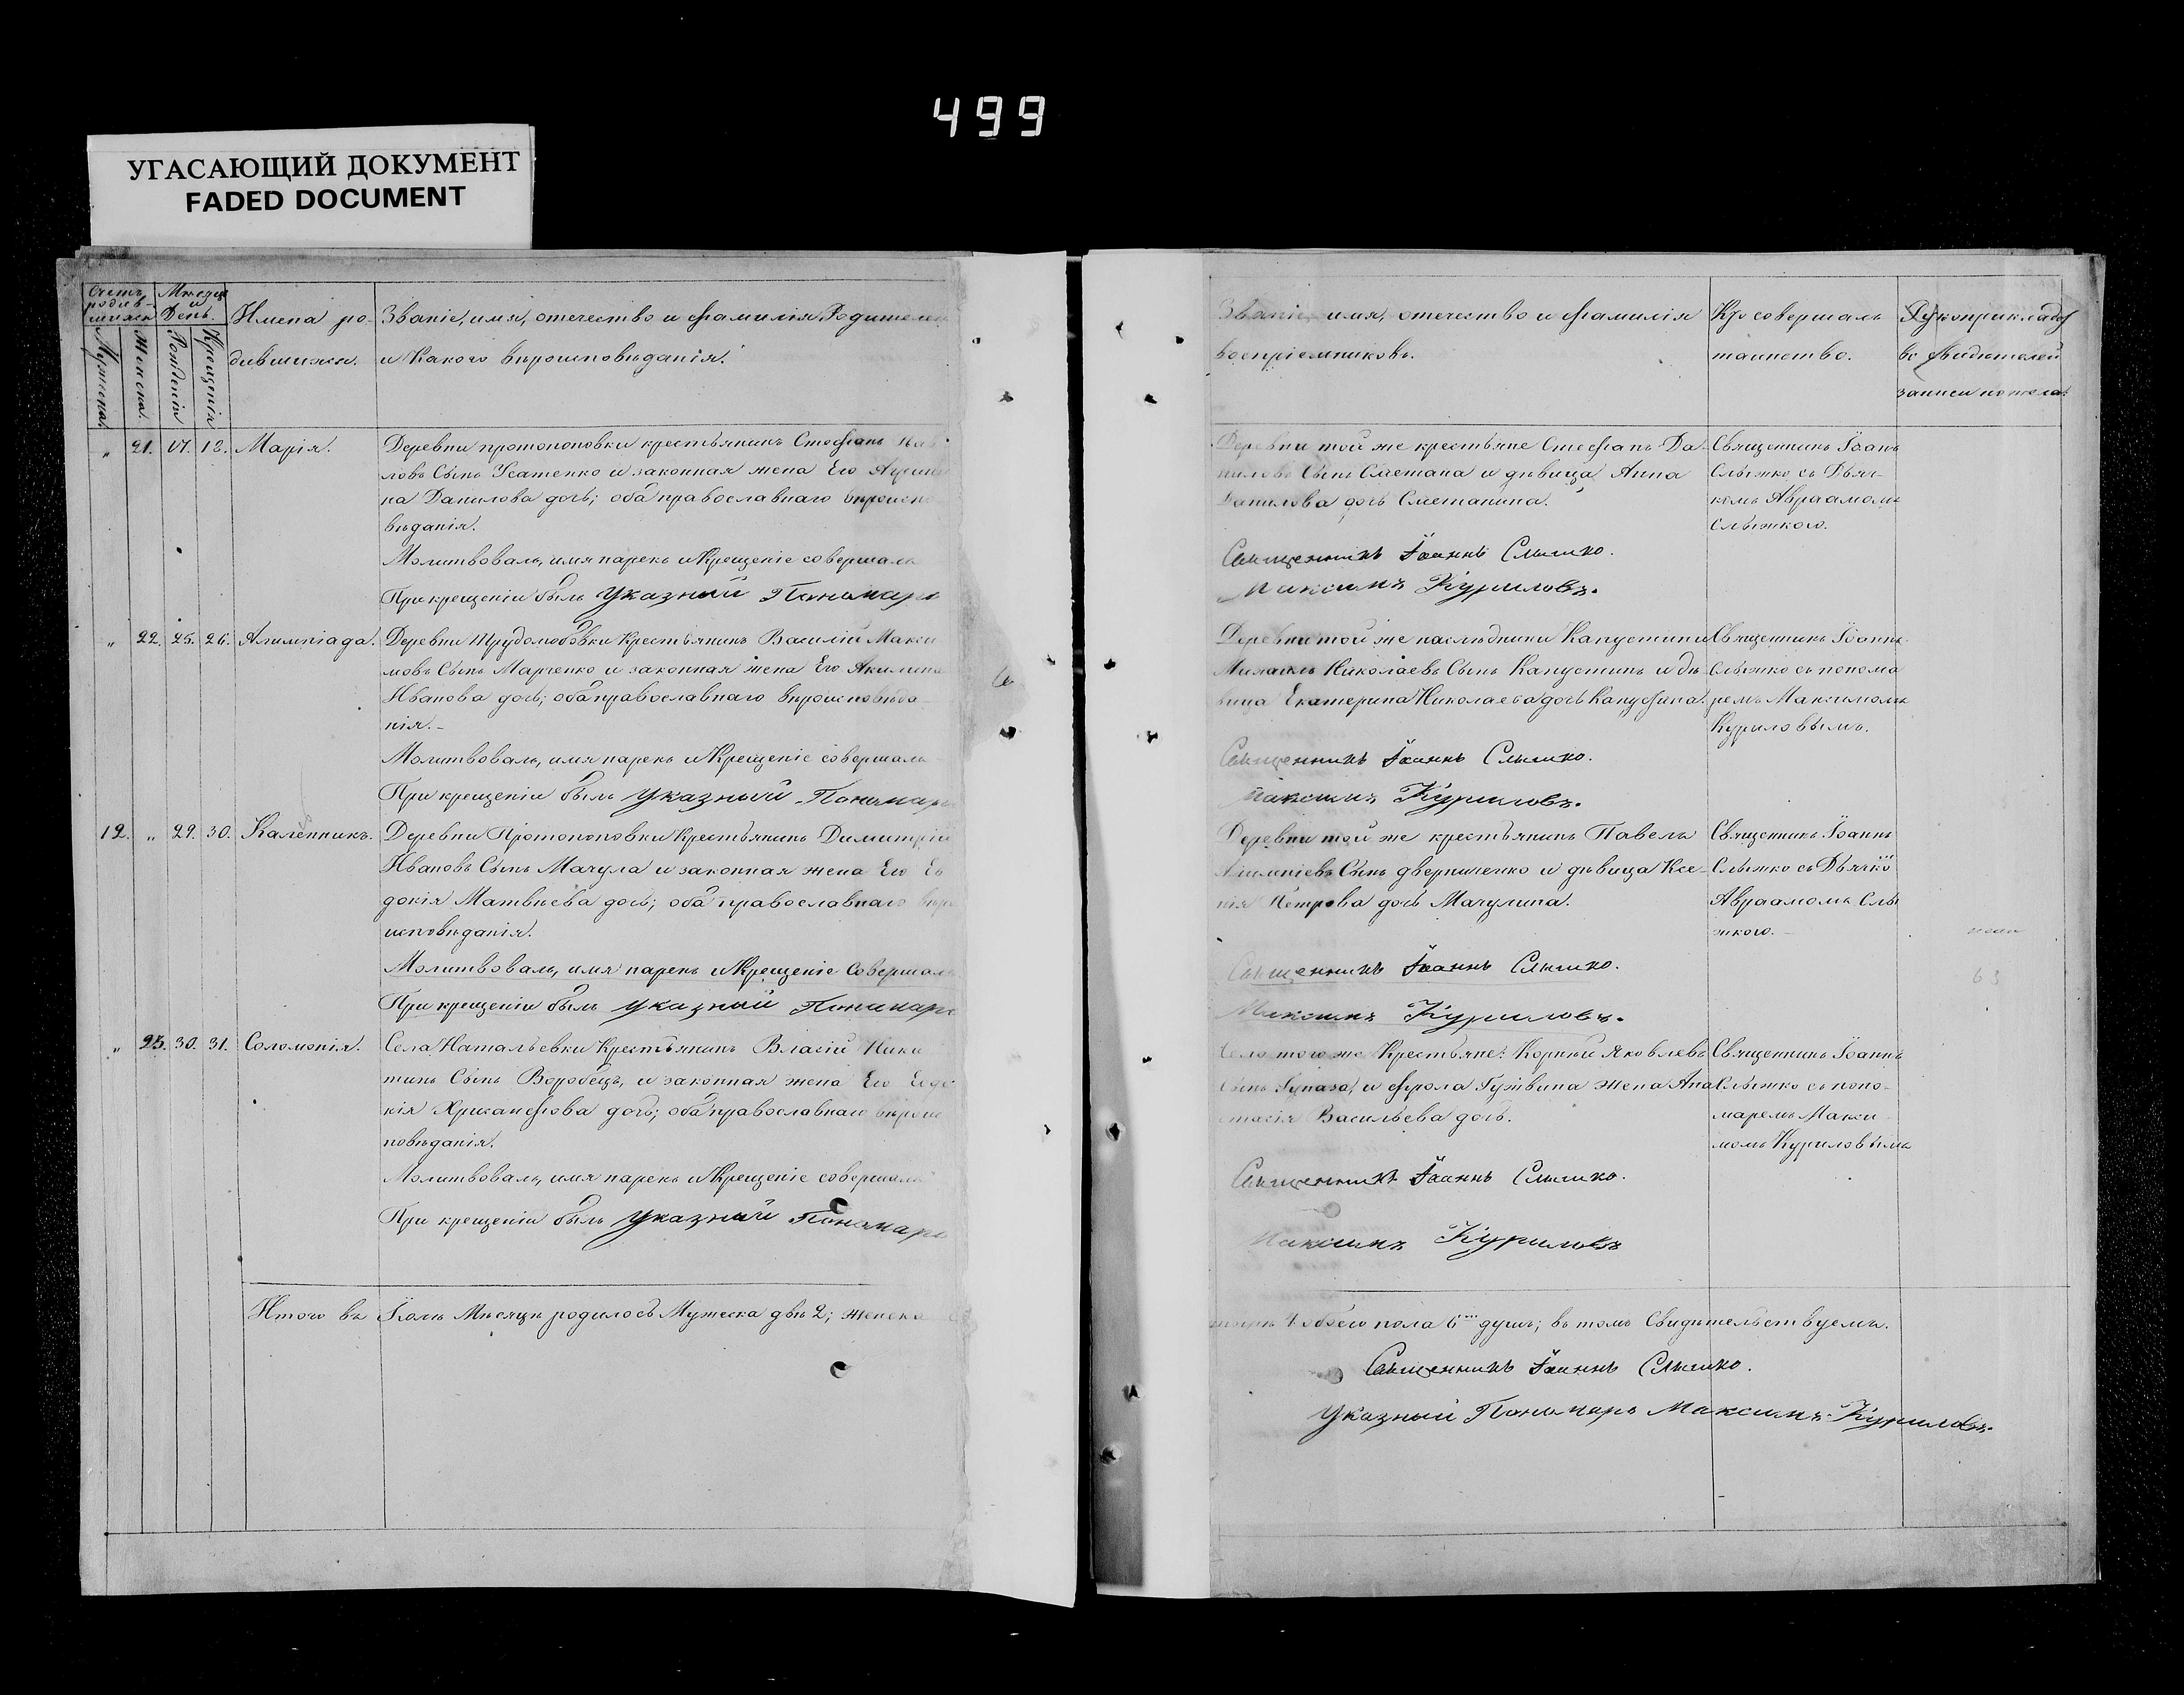 499
УГАСАЮЩИЙ ДОКУМЕНТ
FADED DOCUMENT
Счетъ родив-шихся
Мѣсяцъ и День.
Мужеска
Женска.
Рожденія
Крещенія
Имена ро-
дившихся.
Званіе, имя, отечество и фамилія Родителей
и Какого вѣроисповѣданія.
„ 21. 17. 18. Марія.
Деревни протопоповки крестьянинъ Стефанъ Пав
ловъ Сынъ Усатенко и законная жена Его
на Данилова дочь; оба православнаго вѣроиспо
вѣданія.
Молитвовалъ, имя нарекъ и Крещеніе совершалъ
При крещеніи былъ указный Пономарь
„ 22. 25. 26. Алимпіада.
Деревни Трудолюбовки Крестьянинъ Василій Макси
мовъ Сынъ Марченко и законная жена Его Акилина
Иванова дочь; оба православнаго вѣроисповѣда
нія.-
Молитвовалъ, имя нарекъ и Крещеніе совершалъ
При крещеніи былъ указный Пономарь
12. „ 29. 30. Каленникъ.
Деревни Протопоповки Крестьянинъ Димитрій
Ивановъ Сынъ Мачула и законная жена Его Ев
докія Матвѣева дочь; оба православнаго вѣро
исповѣданія.
Молитвовалъ, имя нарекъ и Крещеніе Совершалъ
При крещеніи былъ указный Пономарь
„ 25. 30. 31. Соломонія.
Села Натальевки Крестьянинъ Власій Ники
тинъ Сынъ Воробецъ, и законная жена Его Евдо
кія Хрисанфова дочь; оба православнаго вѣроис
повѣданія.
Молитвовалъ, имя нарекъ и Крещеніе совершалъ
При крещеніи былъ указный Пономарь
Итого въ Іюлѣ Мѣсяцѣ родилось Мужеска двѣ 2; женска
Званіе, имя, отечество и фамилія
воспріемниковъ.
Кто совершалъ
таинство.
Рукоприкладст
во свидѣтелей
записи по жела
Деревни той же крестьяне Стефанъ Да-
ниловъ Сынъ Сметана и дѣвица Анна
Данилова дочь Сметанина.
Священникъ Іоаннъ Слышко.
Максимъ Куриловъ.
Священникъ Іоаннъ
Слышко съ Дьяч-
комъ Авраамомъ
Слышкого.
Деревни той же наслѣдники Капустины
Михаилъ Николаевъ Сынъ Капустинъ и дѣ
вица Екатерина Николаева дочь Капустина.
Священникъ Іоаннъ Слышко.
Максимъ Куриловъ.
Священникъ Іоаннъ
Слышко съ понома
ремъ Максимомъ
Куриловымъ.
Деревни той же крестьянинъ Павелъ
Сынъ дверниченко и дѣвица Ксе-
нія Петрова дочь Мачулина.
Священникъ Іоаннъ Слышко.
Максимъ Куриловъ.
Священникъ Іоаннъ
Слышко съ Дьячко
Авраамомъ Слы
шкого.-
63
Села того же Крестьяне: Корнѣй Яковлевъ
Сынъ и фрола Гужвина жена Ана
стасія Васильева дочь.
Священникъ Іоаннъ Слышко.
Максимъ Куриловъ
Священникъ Іоаннъ
Слышко съ поно-
маремъ Макси
момъ Куриловымъ
4 обоего пола 6 душъ; въ томъ Свидѣтельствуемъ.
Священникъ Іоаннъ Слышко.
Указный Пономарь Максимъ Куриловъ.